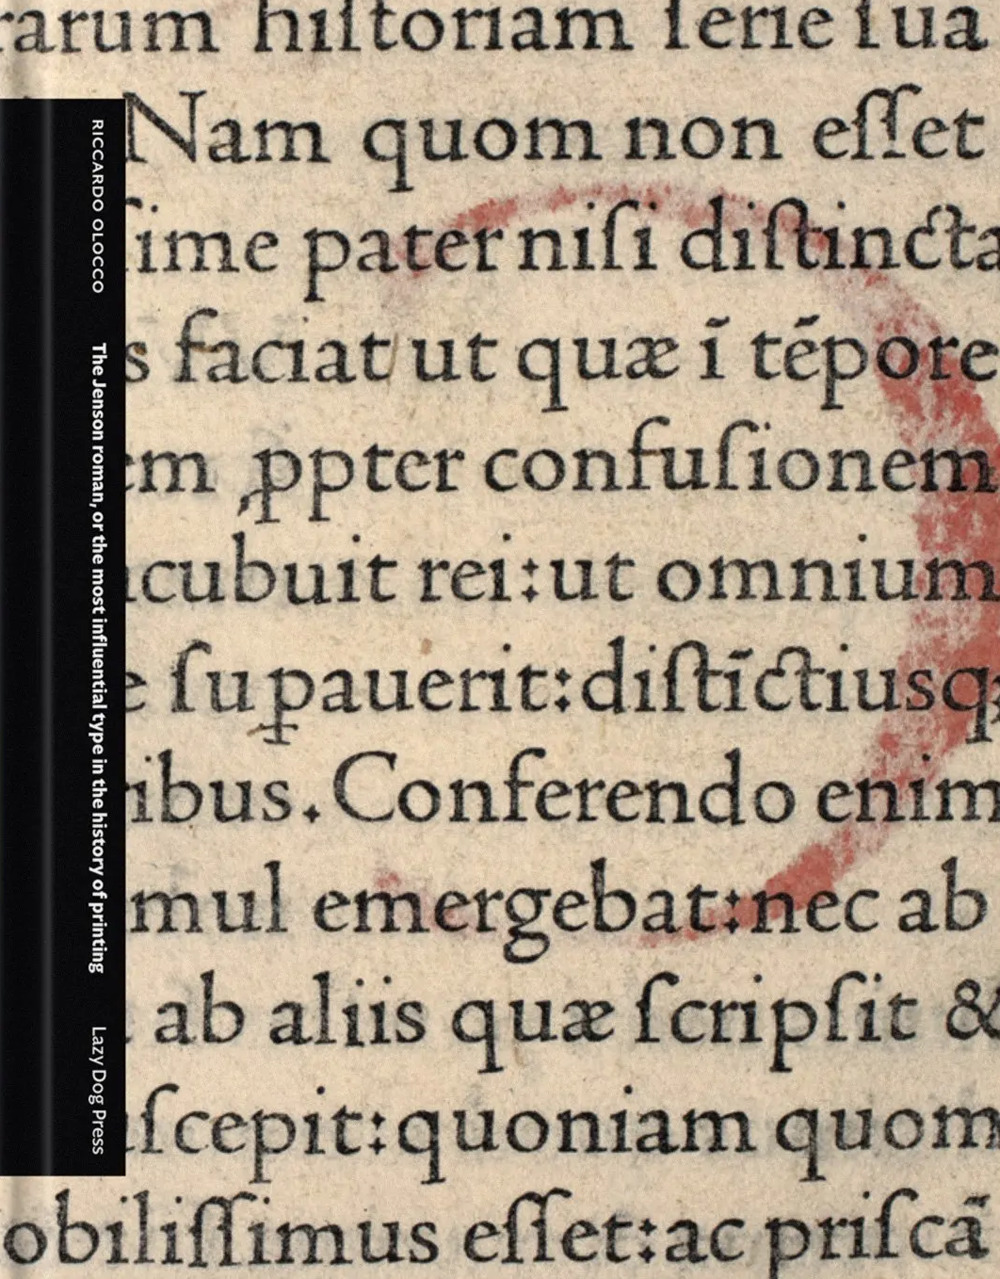 rarum hiſtoriam ſerie ſua
Nam quom non eſſet
ſime pater niſi diſtincta
s faciat ut quæ ī tēpore
em ꝓpter confuſionem
cubuit rei:ut omnium
e ſuꝑauerit:diſtīctiusqꝫ
ibus. Conferendo enim
mul emergebat:nec ab
ab aliis quæ ſcripſit &
ſcepit:quoniam quom
obiliſſimus eſſet:ac priſcā
RICCARDO OLOCCO
The Jenson roman, or the most influential type in the history of printing
Lazy Dog Press